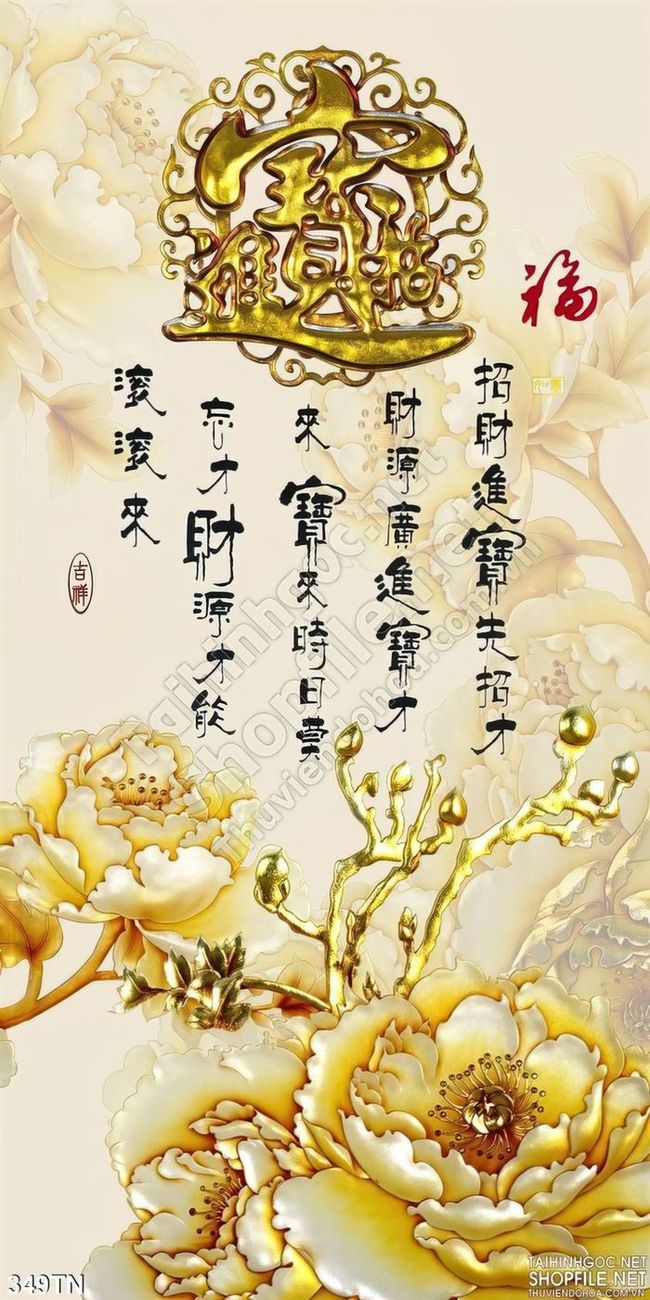 招財進寶
福
招財進寶先招才
財源廣進寶才
來寶來時日莫
忘才財源才能
滾滾來
吉祥
taihinhgoc.net
shopfile.net
thuviendohoa.com.vn
349TN
TAIHINHGOC.NET
SHOPFILE.NET
THUVIENDOHOA.COM.VN